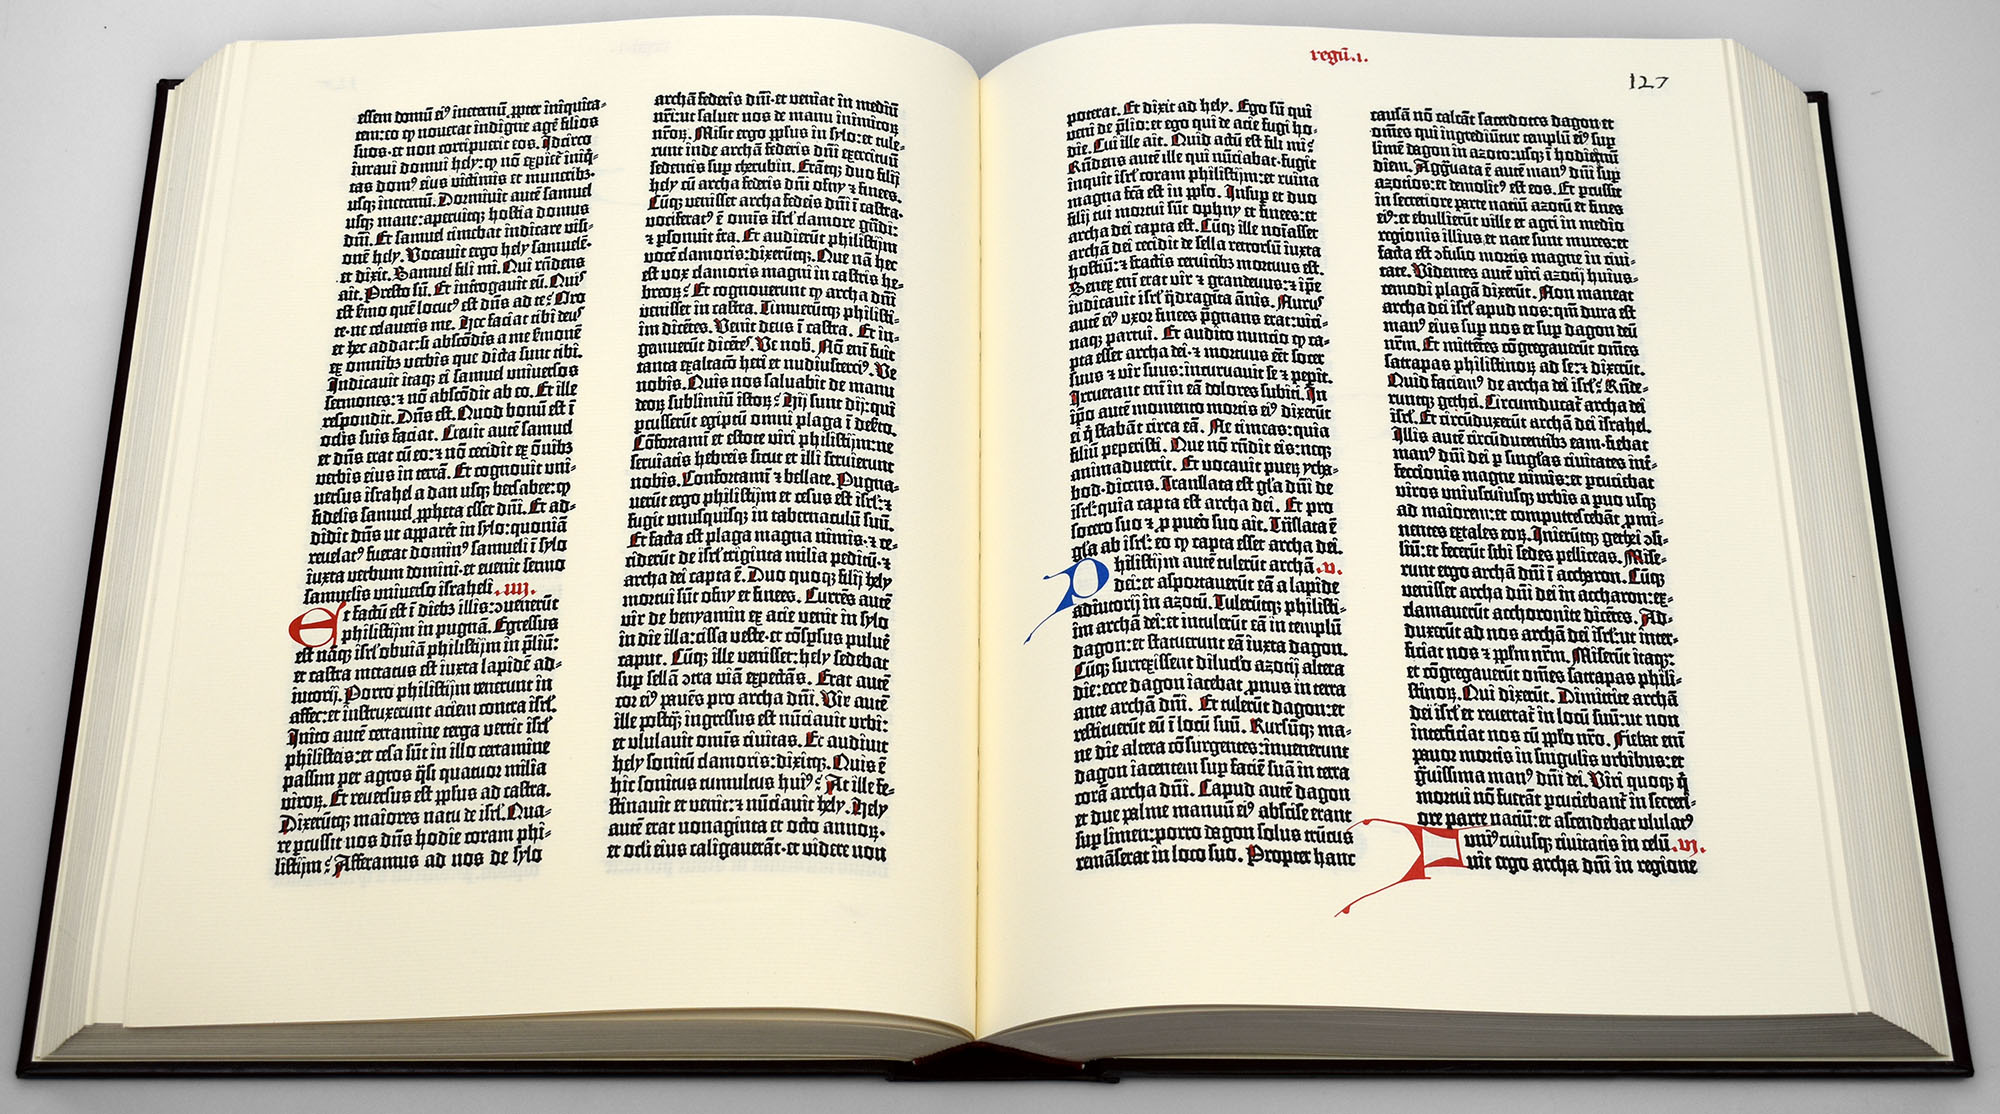 essem domū eiꝰ inceternū ꝓpter iniquita⸗
tem: eo ꝙ nouerat indigne agē filios
suos· et non corripuerit eos. Idcirco
iuraui domui hely: ꝙ nō expiet̄ iniq̄⸗
tas domꝰ eius victimis et muneribꝫ·
usqꝫ ineternū. Dormiuit autē samuel
usqꝫ mane: aperuitqꝫ hostia domus
dn̄i. Et samuel timebat indicare visi⸗
onē hely. Vocauit ergo hely samuelē·
et dixit. Samuel fili mi. Qui rn̄dens
ait. Presto sū. Et int̄rogauit eū. Quis
est s̄mo quē locutꝰ est dn̄s ad te? Oro
te· ne celaueris me. Hec faciat tibi deus
et hec addat: si abscōdis a me s̄monē
ex omnibꝫ verbis que dicta sunt tibi.
Indicauit itaqꝫ ei samuel vniuersos
sermones: ⁊ nō abscōdit ab eo. Et ille
respondit. Dn̄s est. Quod bonū est ī
oclis suis faciat. Creuit autē samuel
et dn̄s erat cū eo: ⁊ nō cecidit ex ōnibꝫ
verbis eius in terrā. Et cognouit vni⸗
uersus israhel a dan usqꝫ bersabee: ꝙ
fidelis samuel ꝓpheta esset dn̄i. Et ad⸗
didit dn̄s ut apparēt in sylo: quoniā
reuelatꝰ fuerat dominꝰ samueli ī sylo
iuxta verbum domini· et euenit sermo
samuelis vniuerso israheli. .iiij.
Et factū est ī diebꝫ illis: ꝯuenerūt
philistijm in pugnā. Egressus
est nāqꝫ isrl̄ obuiā philistijm in p̄liū:
et castra metatus est iuxta lapidē ad⸗
iutorij. Porro philistijm venerunt in
affec: et instruxerunt aciem contra isrl̄.
Inito autē certamine terga vertit isrl̄
philisteis: et cesa sūt in illo certamine
passim per agros q̄si quatuor milia
viroꝝ. Et reuersus est ppl̄us ad castra.
Dixerūtqꝫ maiores natu de isrl̄. Qua⸗
re ꝑcussit nos dn̄s hodie coram phi⸗
listijm? Afferamus ad nos de sylo
archā federis dn̄i· et veniat in mediū
nr̄i: ut saluet nos de manu inimicoꝝ
nr̄oꝝ. Misit ergo ppl̄us in sylo: et tule⸗
runt inde archā federis dn̄i exercituū
sedentis suꝑ cherubin. Erātqꝫ duo filij
hely cū archa federis dn̄i ofny ⁊ finees.
Cūqꝫ venisset archa fedeis dn̄i ī castra·
vociferatꝰ ē omīs isrl̄ clamore gn̄di:
⁊ ꝑsonuit tr̄a. Et audierūt philistijm
vocē clamoris: dixerūtqꝫ. Que nā hec
est vox clamoris magni in castris he⸗
breoꝝ? Et cognouerunt ꝙ archa dn̄i
venisset in castra. Timuerūtqꝫ philisti⸗
im dicētes. Venit deus ī castra. Et in⸗
gemuerūt dicētes. Ve nob̄. Nō eni fuit
tanta exaltaco heri et nudiusterciꝰ. Ve
nobis. Quis nos saluabit de manu
deoꝝ sublimiū istoꝝ? Hij sunt dij: qui
ꝑcusserūt egiptū omni plaga ī deserto.
Cōfortami et estote viri philistijm: ne
seruiatis hebreis sicut et illi seruierunt
nobis. Confortami ⁊ bellate. Pugna⸗
uerūt ergo philistijm et cesus est isrl̄: ⁊
fugit vnusquisqꝫ in tabernaculū suū.
Et facta est plaga magna nimis· ⁊ ce⸗
ciderūt de isrl̄ triginta milia peditū· ⁊
archa dei capta ē. Duo quoqꝫ filij hely
mortui sūt ofny et finees. Currēs autē
vir de beniamin ex acie venit in sylo
in die illa: scissa veste· et cōsꝑsus puluē
caput. Cūqꝫ ille venisset: hely sedebat
suꝑ sellā ꝯtra viā expectās. Erat autē
cor eiꝰ pauēs pro archa dn̄i. Vir autē
ille postqꝫ̄ ingressus est nūciauit vrbi:
et vlulauit omīs ciuitas. Et audiuit
hely sonitū clamoris: dixitqꝫ. Quis ē
hic sonitus tumultus huiꝰ? At ille fe⸗
stinauit et venit: ⁊ nūciauit hely. Hely
autē erat nonaginta et octo annoꝝ·
et ocli eius caligauerāt· et videre non
regū.i.
127
poterat. Et dixit ad hely. Ego sū qui
veni de p̄lio: et ego qui de acie fugi ho⸗
die. Cui ille ait. Quid actū est fili mi?
Rn̄dens autē ille qui nūciabat· fugit
inquit isrl̄ coram philistijm: et ruina
magna fcā est in pplo. Insuꝑ et duo
filij tui mortui sūt ophny et finees: et
archa dei capta est. Cūqꝫ ille noīasset
archā dei· cecidit de sella retrorsū iuxta
hostiū: ⁊ fractis ceruicibꝫ mortuus est.
Senex eni erat vir ⁊ grandeuus: ⁊ ip̄e
iudicauit isrl̄ q̄draginta ānnis. Nurus
autē eiꝰ vxor finees p̄gnans erat: vici⸗
naqꝫ partui. Et audito nuncio ꝙ ca⸗
pta esset archa dei· ⁊ mortuus eēt socer
suus ⁊ vir suus: incuruauit se ⁊ peꝑit.
Irruerant eni in eā dolores subiti. In
ip̄o autē momento mortis eiꝰ dixerūt
ei q̄ stabāt circa eā. Ne timeas: quia
filiū peperisti. Que nō rn̄dit eis: neqꝫ
animaduertit. Et vocauit pueꝝ ycha⸗
bod· dicens. Translata est gl̄a dn̄i de
isrl̄: quia capta est archa dei. Et pro
socero suo ⁊ ꝓ puero suo ait. Trāslata ē
gl̄a ab isrl̄: eo ꝙ capta esset archa dei.
Philistijm autē tulerūt archā .v.
dei: et asportauerūt eā a lapide
adiutorij in azotū. Tulerūtqꝫ philisti⸗
im archā dei: et intulerūt eā in templū
dagon: et statuerunt eā iuxta dagon.
Cūqꝫ surrexissent diluclo azotij altera
die: ecce dagon iacebat ꝓnus in terra
ante archā dn̄i. Et tulerūt dagon: et
restituerūt eū ī locū suū. Rursūqꝫ ma⸗
ne die altera cōsurgentes: inuenerunt
dagon iacentem suꝑ faciē suā in terra
corā archa dn̄i. Caput autē dagon
et due palme manuū eiꝰ abscise erant
suꝑ limen: porro dagon solus trūcus
remāserat in loco suo. Propter hanc
causā nō calcāt sacerdotes dagon· et
om̄es qui ingrediūtur templū eiꝰ suꝑ
limē dagon in azoto: usqꝫ ī hodiernū
diem. Aggͣuata ē autē manꝰ dn̄i suꝑ
azotios: et demolitꝰ est eos. Et ꝑcussit
in secretiore parte natiū azotū et fines
eiꝰ: et ebullierūt ville et agri in medio
regionis illius· et nate sunt mures: et
facta est ꝯfusio mortis magne in ciui⸗
tate. Videntes autē viri azotij huius⸗
cemodi plagā dixerūt. Non maneat
archa dei isrl̄ apud nos: qm̄ dura est
manꝰ eius suꝑ nos et suꝑ dagon deū
nr̄m. Et mittētes cōgregauerūt om̄es
satrapas philistinoꝝ ad se: ⁊ dixerūt.
Quid faciemꝰ de archa dei isrl̄? Rn̄de⸗
runtqꝫ gethei. Circumducat̄ archa dei
isrl̄. Et circūduxerūt archā dei israhel.
Illis autē circūducentibꝫ eam· fiebat
manꝰ dn̄i dei ꝑ singl̄as ciuitates int̄⸗
fectionis magne nimis: et ꝑcutiebat
viros vniuscuiusqꝫ vrbis a puo usqꝫ
ad maiorem: et computrescebāt ꝓmi⸗
nentes extales eoꝝ. Inierūtqꝫ gethei ꝯsi⸗
liū: et fecerūt sibi sedes pelliceas. Mise⸗
runt ergo archā dn̄i ī accharon. Cūqꝫ
venisset archa dei in accharon: ex⸗
clamauerūt acchoronite dicētes. Ad⸗
duxerūt ad nos archā dei isrl̄: ut inter⸗
ficiat nos ⁊ ppl̄m nr̄m. Miserūt itaqꝫ:
et cōgregauerūt om̄es satrapas phili⸗
stinoꝝ. Qui dixerūt. Dimittite archā
dei isrl̄· et reuertat̄ in locū suū: ut non
interficiat nos cū ppl̄o nr̄o. Fiebat eni
pauor mortis in singulis vrbibus: et
gͣuissima manꝰ dn̄i dei. Viri quoqꝫ q̄
mortui nō fuerāt ꝑcutiebant̄ in secreti⸗
ore parte natiū: et ascendebat vlulatꝰ
vniꝰ cuiusqꝫ ciuitatis in celū. .vj.
Fuit ergo archa dn̄i in regione